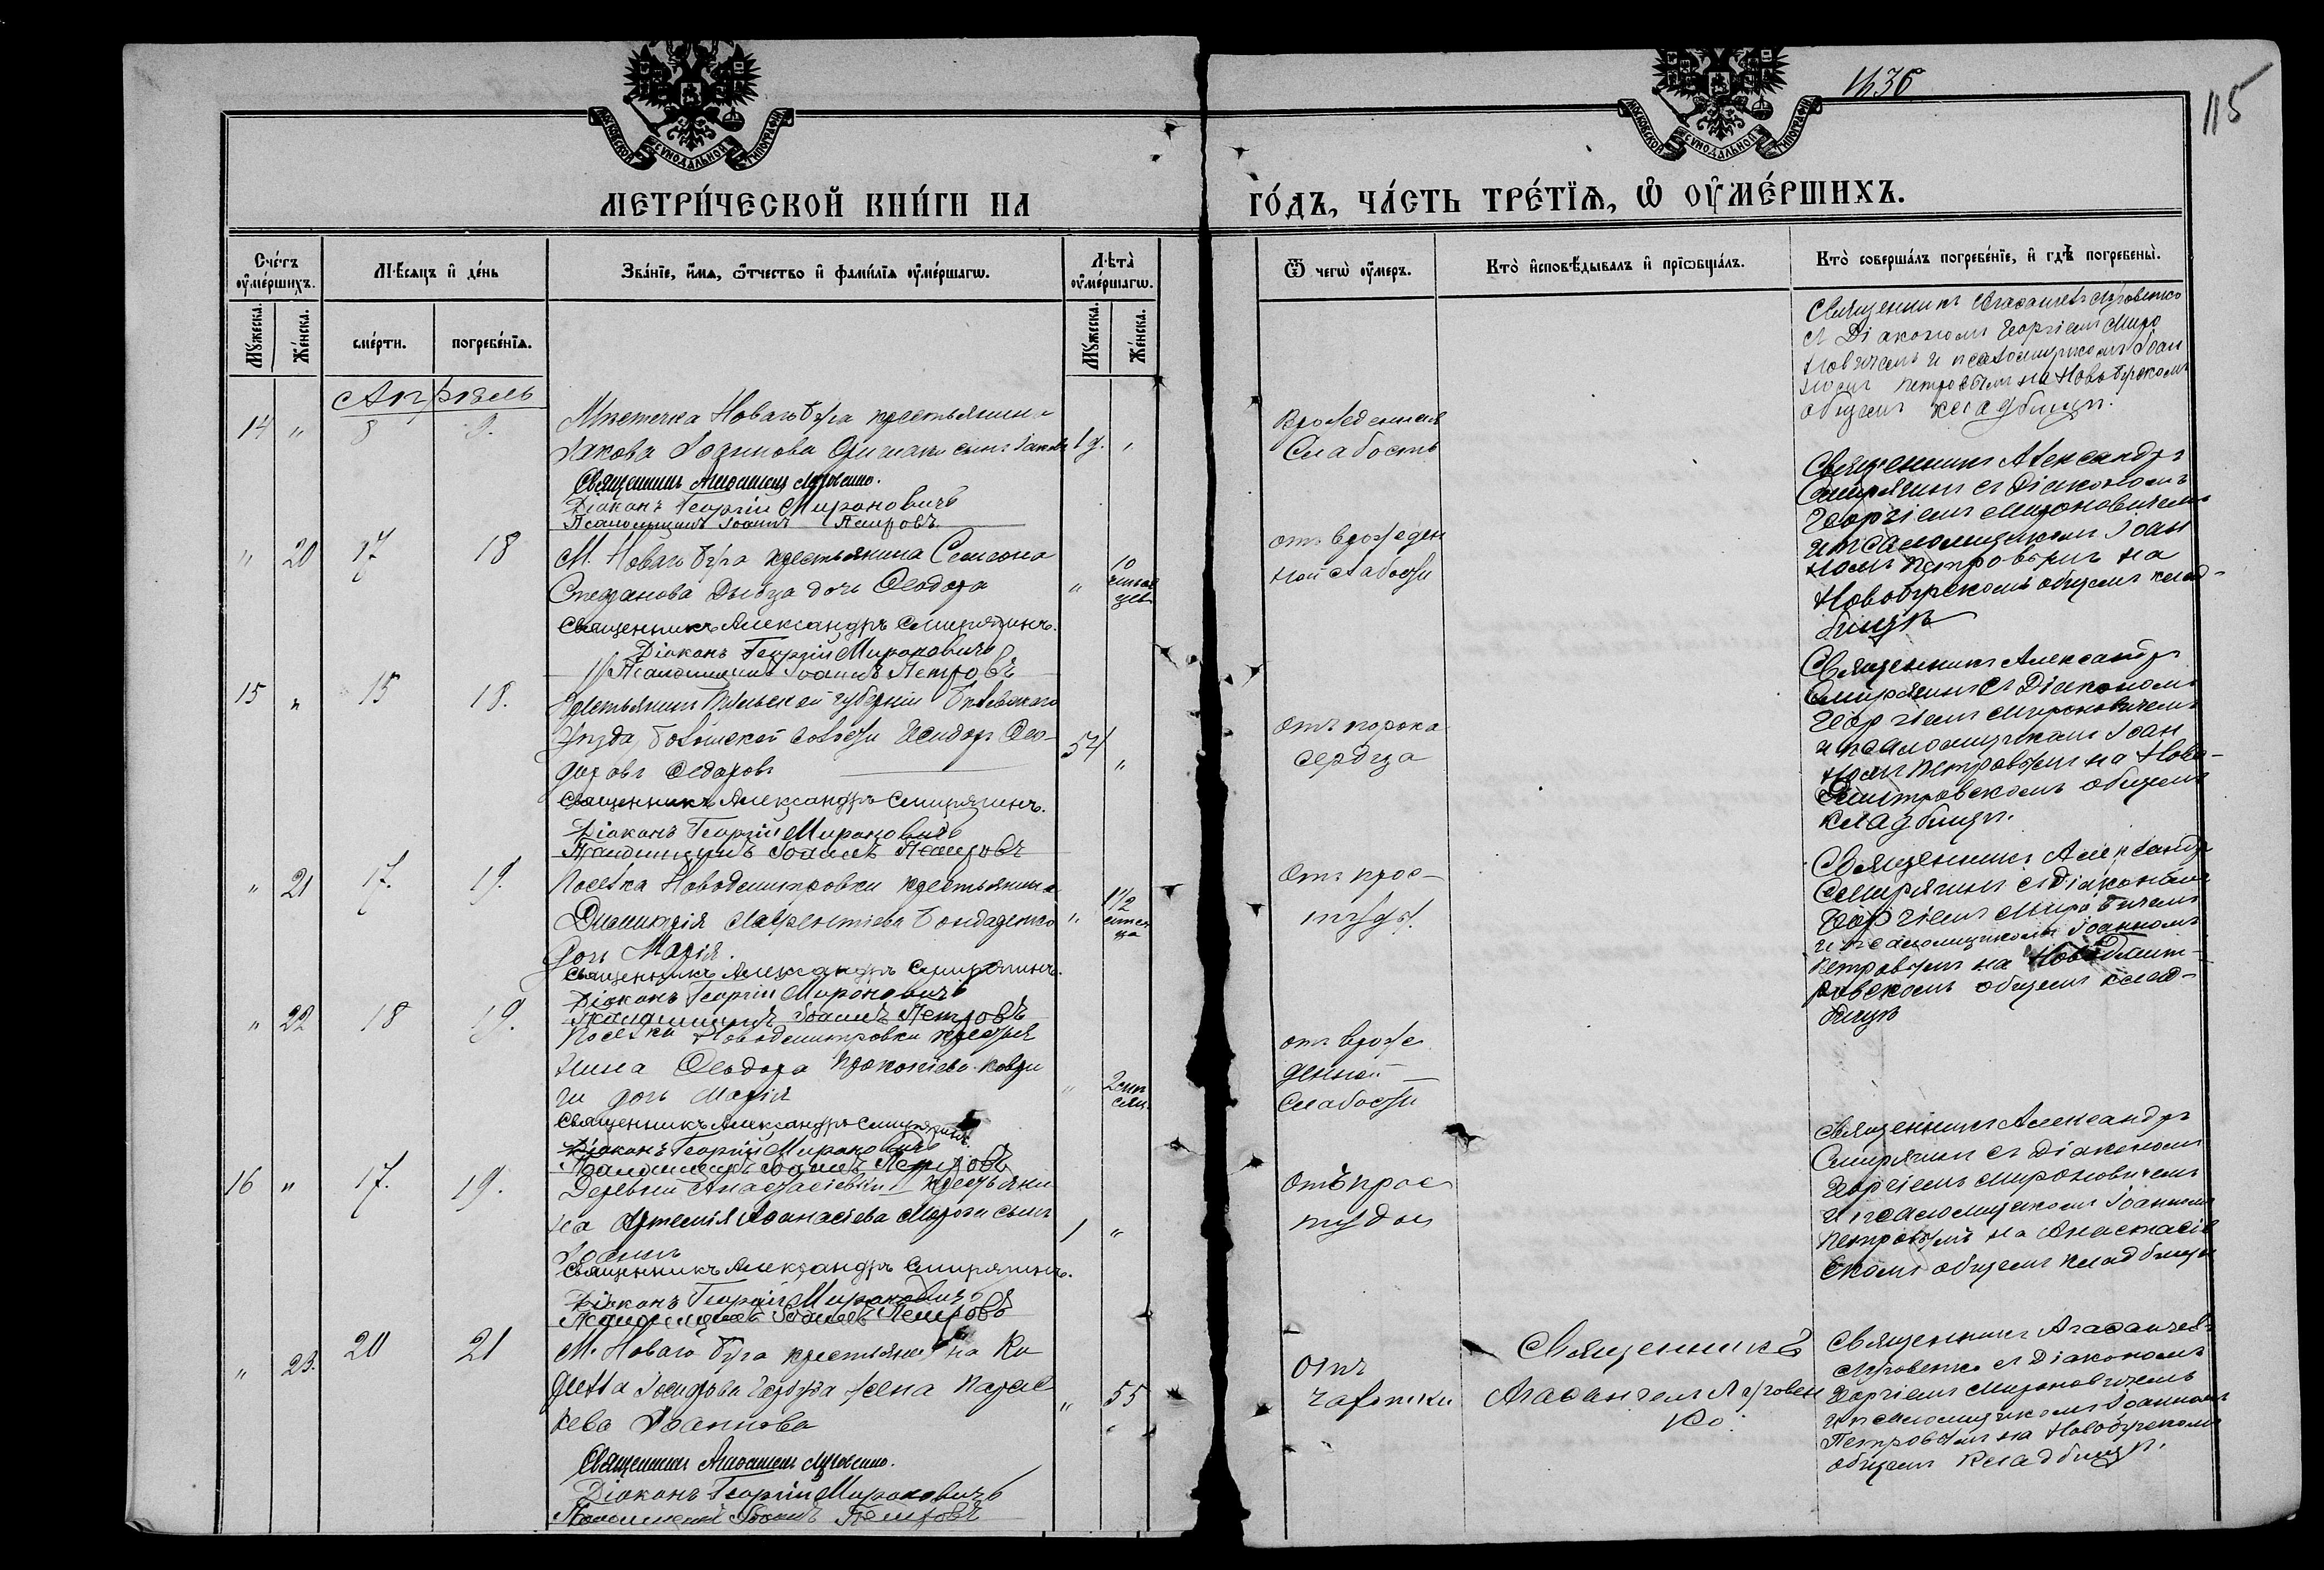 1436
115
МОСКОВСКОЙ СУНОДАЛЬНОЙ ТИПОГРАФІИ
МОСКОВСКОЙ СУНОДАЛЬНОЙ ТИПОГРАФІИ
МЕТРИ́ЧЕСКОЙ КНИ́ГИ НА ГО́ДЪ, ЧА́СТЬ ТРЕ́ТЇѦ, Ѡ ОУ҆МЕ́РШИХЪ.
Сче́тъ оу҆ме́ршихъ.
Мꙋ́жеска.
Же́нска.
Мѣ́сѧцъ и҆ де́нь
сме́рти.
погребе́нїѧ.
Зва́нїе, и҆́мѧ, ѻ҆́тчество и҆ фами́лїѧ оу҆ме́ршагѡ.
Лѣ́та оу҆ме́ршагѡ.
Мꙋ́жеска.
Же́нска.
Ѿ чегѡ̀ оу҆́меръ.
Кто̀ и҆сповѣ́дывалъ и҆ прїѡбща́лъ.
Кто̀ соверша́лъ погребе́нїе, и҆ гдѣ̀ погребены̀.
Апрѣль
14 " 8 9.
Мѣстечка Новаго Буга крестьянина
Іакова сынъ Іаковъ 1 д. "
Священникъ Агаѳангелъ Луговенко.
Діаконъ Георгій Мироновичъ
Псаломщикъ Іоаннъ Петровъ
Врожденная
Слабость
Священникъ Агаѳангелъ Луговенко
съ Діакономъ Георгіемъ Миро
новичемъ и псаломщикомъ Іоан
номъ Петровымъ на Новобугскомъ
общемъ кладбищѣ.
" 20 17 18
М. Новаго Буга крестьянина Симеона
Стефанова дочь Ѳеодора " 10 мѣсяцев
Священникъ Александръ Смирягинъ.
Діаконъ Георгій Мироновичъ
Псаломщикъ Іоаннъ Петровъ
отъ врожден
ной слабости
Священникъ Александръ
Смирягинъ съ Діакономъ
Георгіемъ Мироновичемъ
и псаломщикомъ Іоан
номъ Петровымъ на
Новобугскомъ общемъ клад-
бищѣ
15 " 15 18.
Крестьянинъ Тульской губерніи Бѣлевскаго
уѣзда, волости Исидоръ Ѳео-
доровъ Ѳедоровъ 54 "
Священникъ Александръ Смирягинъ.
Діаконъ Георгій Мироновичъ
Псаломщикъ Іоаннъ Петровъ
Отъ порока
сердца
Священникъ Александръ
Смирягинъ съ Діакономъ
Георгіемъ Мироновичемъ
и псаломщикомъ Іоан
номъ Петровымъ на Ново-
дмитровскомъ общемъ
кладбищѣ.
" 21 17. 19.
Поселка Новодмитровки крестьянина
Димитрія Лаврентіева Бондаренко " 1 1/2 мѣсяца
дочь Марія.
Священникъ Александръ Смирягинъ.
Діаконъ Георгій Мироновичъ
Псаломщикъ Іоаннъ Петровъ
Отъ прос-
туды.
Священникъ Александръ
Смирягинъ съ Діакономъ
Георгіемъ Мироновичемъ
и псаломщикомъ Іоанномъ
Петровымъ на Новодмит-
ровскомъ общемъ клад-
бищѣ
" 22 18 19.
Поселка Новодмитровки крестья
нина Ѳеодора Прокопіева
дочь Марія "
Священникъ Александръ Смирягинъ.
Діаконъ Георгій Мироновичъ
Псаломщикъ Іоаннъ Петровъ
отъ врож
денной
слабости
16 " 17. 19.
Деревни Анастасіевки крестьяни
на Артемія Аѳанасіева сынъ
Іоаннъ 1 "
Священникъ Александръ Смирягинъ.
Діаконъ Георгій Мироновичъ
Псаломщикъ Іоаннъ Петровъ
Отъ прос
туды
Священникъ Александръ
Смирягинъ съ Діакономъ
Георгіемъ Мироновичемъ
и псаломщикомъ Іоанномъ
Петровымъ на Анастасіев
скомъ общемъ кладбищѣ
" 23. 20 21
М. Новаго Буга крестьянина Ки
рилла Іосифова жена Парас
кева Іоаннова " 55
Священникъ Агаѳангелъ Луговенко.
Діаконъ Георгій Мироновичъ
Псаломщикъ Іоаннъ Петровъ
Отъ
чахотки
Священникъ
Агаѳангелъ Луговен
ко.
Священникъ Агаѳангелъ
Луговенко съ Діакономъ
Георгіемъ Мироновичемъ
и псаломщикомъ Іоанномъ
Петровымъ на Новобугскомъ
общемъ кладбищѣ.